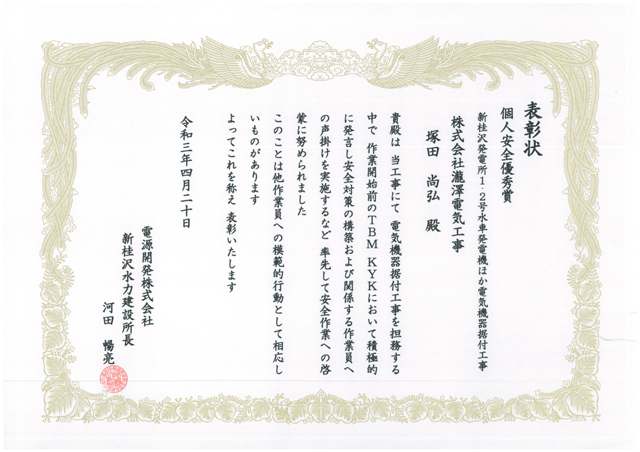 表彰状
個人安全優秀賞
新桂沢発電所1・2号水車発電機ほか電気機器据付工事
株式会社瀧澤電気工事
塚田 尚弘 殿
貴殿は 当工事にて 電気機器据付工事を担務する
中で 作業開始前のTBM KYKにおいて積極的
に発言し安全対策の構築および関係する作業員へ
の声掛けを実施するなど 率先して安全作業への啓
蒙に努められました
このことは他作業員への模範的行動として相応し
いものがあります
よってこれを称え 表彰いたします
令和三年四月二十日
電源開発株式会社
新桂沢水力建設所長
河田 暢亮